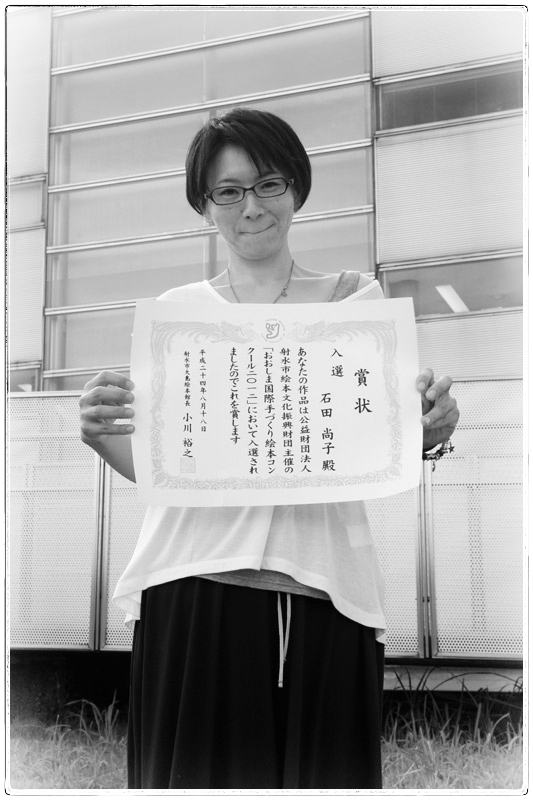 賞状
入選
石田 尚子 殿
あなたの作品は公益財団法人
射水市絵本文化振興財団主催の
「おおしま国際手づくり絵本コン
クール二〇一二」において入選され
ましたのでこれを賞します
平成二十四年八月十八日
射水市大島絵本館長 小川 裕之